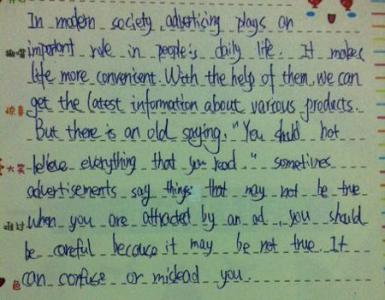 In modern society, advertising plays an
important role in people's daily life. It makes
life more convenient. With the help of them, we can
get the latest information about various products.
But there is an old saying, "You should not
believe everything that you read." sometimes
大笑
advertisements say things that may not be true
when you are attracted by an ad, you should
难过
be careful because it may be not true. It
can confuse or mislead you.